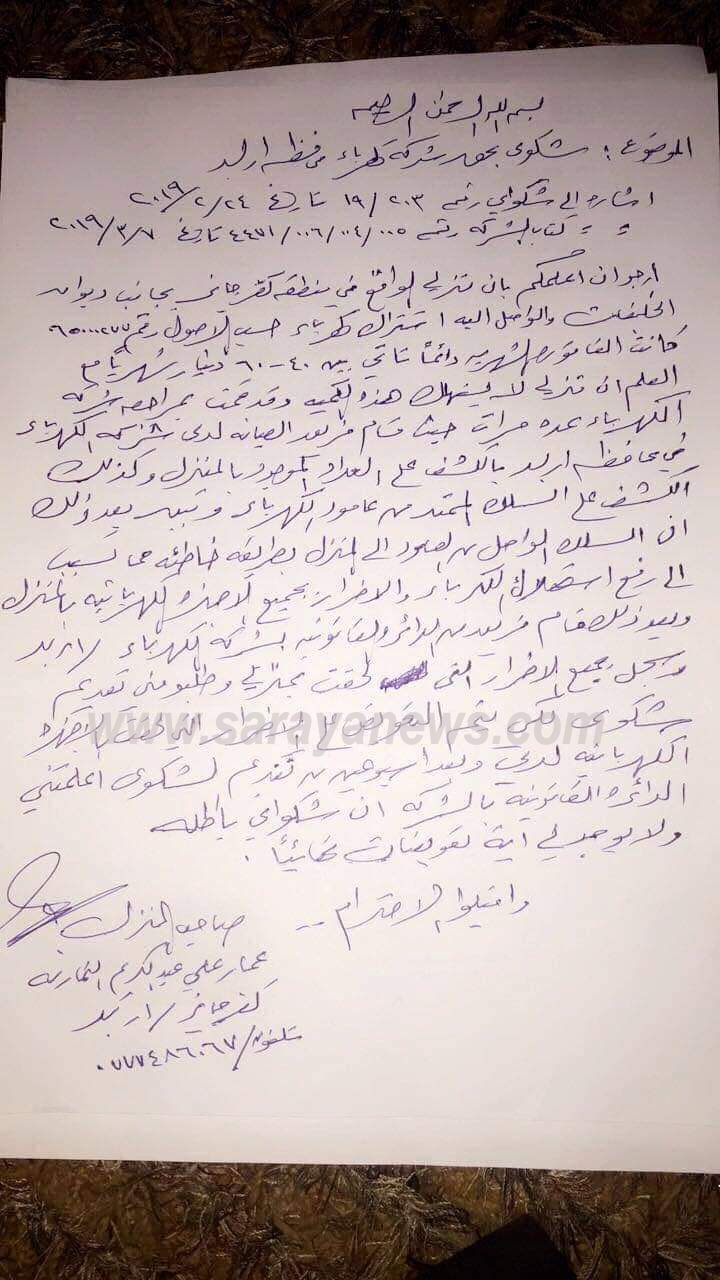 بسم الله الرحمن الرحيم
الموضوع : شكوى بحق شركة كهرباء محافظة اربد
اشاره الى شكواي رقم ١٩/٢٠٣ تاريخ ٢٠١٩/٢/٢٤
= = كتاب الشركه رقم ٤٤٧١/٠٠٦/٠٤/٠٠٥ تاريخ ٢٠١٩/٣/٧
ارجو ان اعلمكم بان منزلي الواقع في منطقه كفرجايز بجانب ديوان
والواصل اليه اشتراك كهرباء حسب الاصول رقم
كانت الفاتوره الشهريه دائماً تاتي بين ٤٠-٦٠ دينار شهرياً مع
العلم ان منزلي لا يستهلك هذه الكميه وقد قمت بمراجعه شركه
الكهرباء عده مرات حيث قام فريق الصيانه لدى شركه الكهرباء
في محافظه اربد بالكشف على العداد الموجود بالمنزل وكذلك
الكشف على السلك الممتد من عامود الكهرباء وتبين بعد ذلك
ان السلك الواصل من العامود الى المنزل بطريقه خاطئه مما تسبب
الى رفع استهلاك الكهرباء والاضرار بجميع الاجهزه الكهربائيه بالمنزل
وبعد ذلك قام فريق من الدائره القانونيه بشركه الكهرباء / اربد
وسجل جميع الاضرار التي لحقت بمنزلي وطلبو مني تقديم
شكوى لكي يتم التعويض عن الاضرار التي لحقت بالاجهزه
الكهربائيه لدي وبعد اسبوعين من تقديم الشكوى اعلمتني
الدائره القانونيه بالشركه ان شكواي باطله
ولا يوجد لي اية تعويضات نهائياً .
واقبلوا الاحترام --
صاحب المنزل
عمار علي عبدالكريم النمارنه
كفرجايز / اربد
تلفون / ٠٧٧٧٤٨٦٠٦٧
www.sarayanews.com